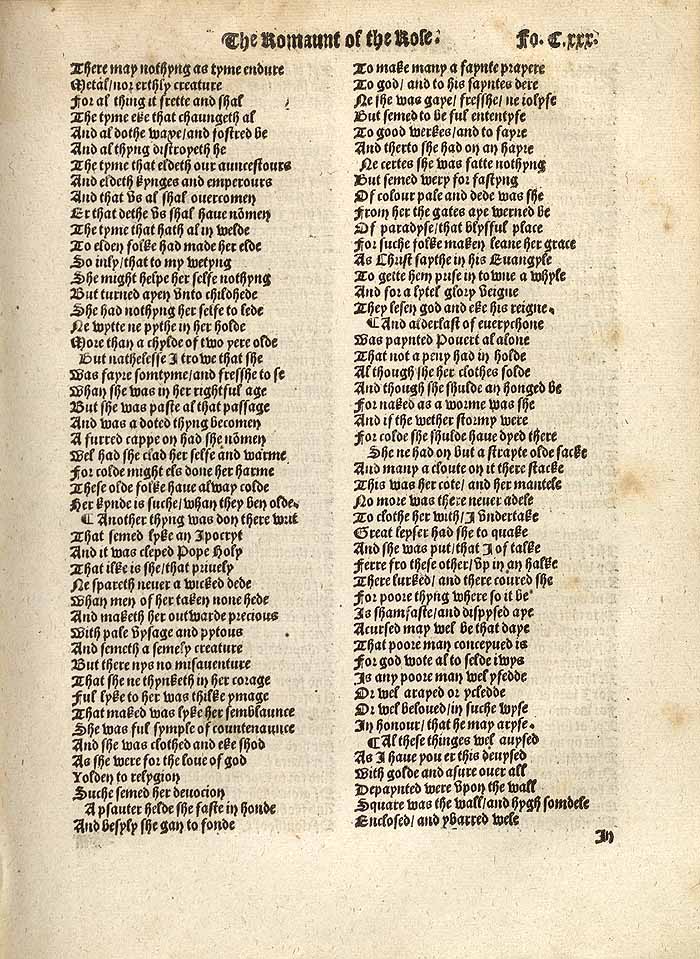 The Romaunt of the Rose.
Fo. C.xxx.
There may nothyng as tyme endure
Metal/nor erthly creature
For al thing it frette and shal
The tyme eke that chaungeth al
And al dothe waxe/and fostred be
And al thyng distroyeth he
The tyme that eldeth our auncestours
And eldeth kynges and emperours
And that vs al shal ouercomen
Er that dethe vs shal haue nōmen
The tyme that hath al in welde
To elden folke had made her elde
So inly/that to my wetyng
She might helpe her selfe nothyng
But turned ayen vnto childhede
She had nothyng her selfe to lede
Ne wytte ne pythe in her holde
More than a chylde of two yere olde
But nathelesse I trowe that she
Was fayre somtyme/and fresshe to se
Whan she was in her rightful age
But she was paste al that passage
And was a doted thyng becomen
A furred cappe on had she nōmen
Wel had she clad her selfe and warme
For colde might els done her harme
These olde folke haue alway colde
Her kynde is suche/whan they ben olde.
¶ Another thyng was don there writ
That semed lyke an Ipocryt
And it was cleped Pope Holy
That ilke is she/that priuely
Ne spareth neuer a wicked dede
Whan men of her taken none hede
And maketh her outwarde precious
With pale vysage and pytous
And semeth a semely creature
But there nys no misauenture
That she ne thynketh in her corage
Ful lyke to her was thilke ymage
That maked was lyke her semblaunce
She was ful symple of countenaunce
And she was clothed and eke shod
As she were for the loue of god
Yolden to relygion
Suche semed her deuocion
A psauter helde she faste in honde
And besyly she gan to fonde
To make many a faynte prayere
To god/ and to his sayntes dere
Ne she was gaye/ fresshe/ ne iolyse
But semed to be ful ententyse
To good werkes/and to fayre
And therto she had on an hayre
Ne certes she was fatte nothyng
But semed wery for fastyng
Of colour pale and dede was she
From her the gates aye werned be
Of paradyse/that blysful place
For suche folke maken leane her grace
As Christ saythe in his Euangyle
To gette hem prise in towne a whyle
And for a lytel glory veigne
They lesen god and eke his reigne.
¶ And alderlast of euerychone
Was paynted Pouert al alone
That not a peny had in holde
Al though she her clothes solde
And though she shulde an honged be
For naked as a worme was she
And if the wether stormy were
For colde she shulde haue dyed there
She ne had on but a strayte olde sacke
And many a cloute on it there stacke
This was her cote/ and her mantele
No more was there neuer adele
To clothe her with/I vndertake
Great leyser had she to quake
And she was put/that I of talke
Ferre fro these other/vp in an halke
There lurked/ and there coured she
For poore thyng where so it be
Is shamfaste/and dispysed aye
Acursed may wel be that daye
That poore man conceyued is
For god wote al to selde iwys
Is any poore man wel yfedde
Or wel arayed or ycledde
Or wel beloued/in suche wyse
In honour/that he may aryse.
¶ Al these thinges wel auysed
As I haue you er this deuysed
With golde and asure ouer all
Depaynted were vpon the wall
Square was the wall/and hygh somdele
Enclosed/ and ybarred wele
In